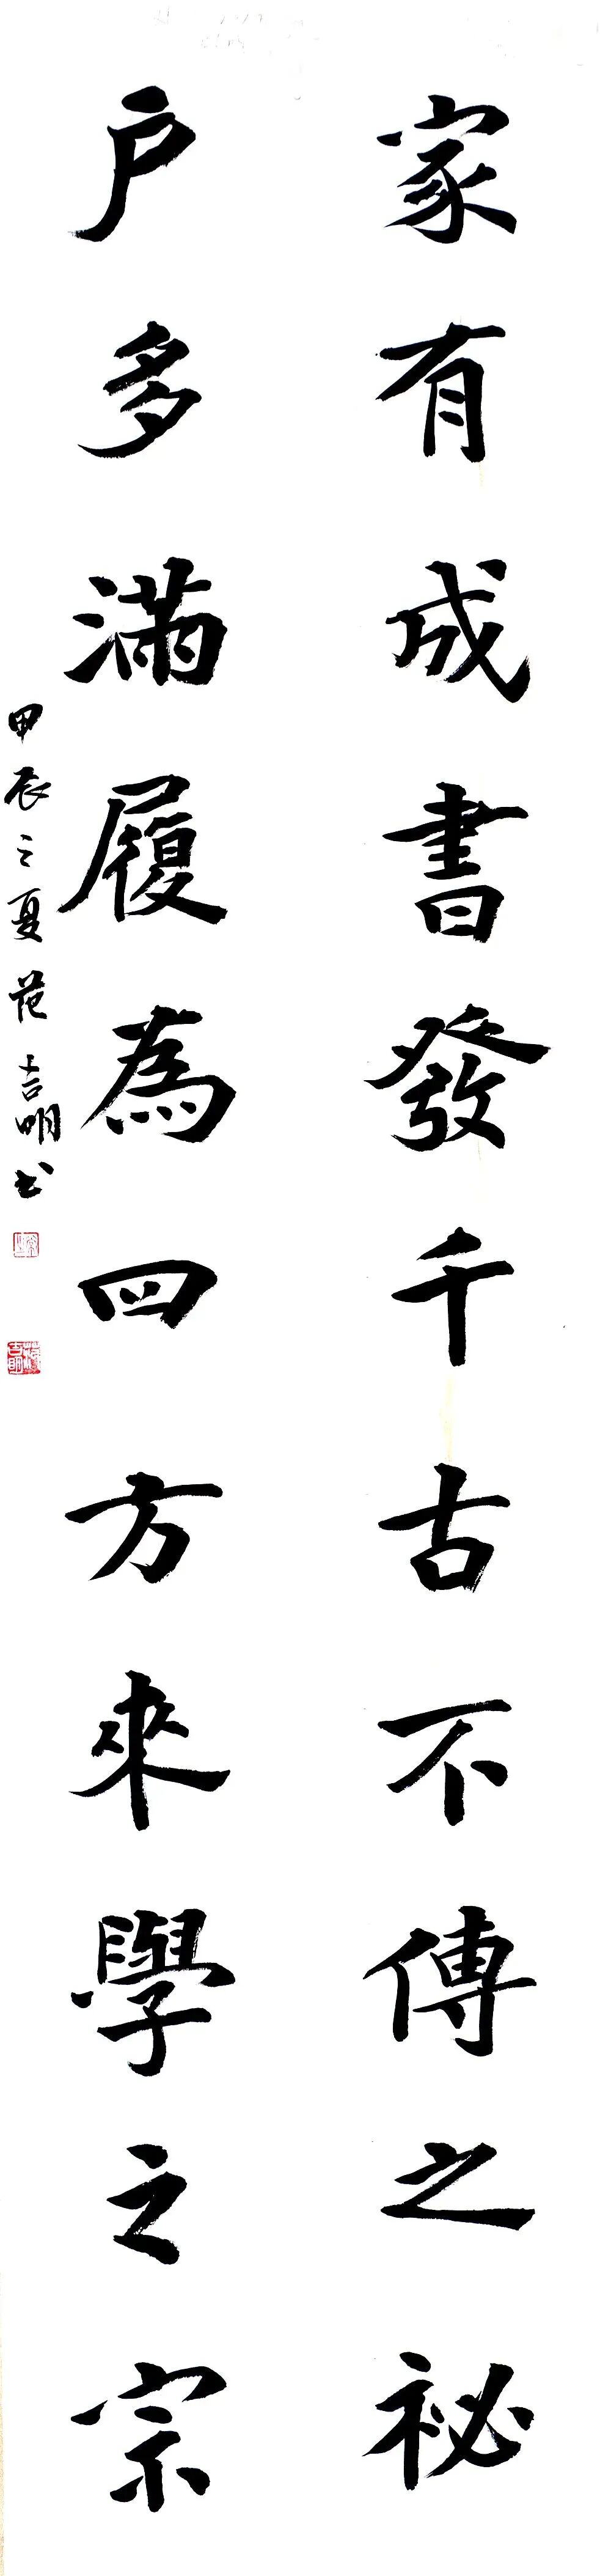 家有成書發千古不傳之祕
户多滿履為四方來學之宗
甲辰之夏范吉明书
范吉明